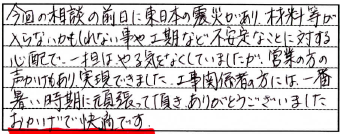 今回の相談の前日に東日本の震災があり、材料等が
入らないかもしれない事や工期など不安定なことに対する
心配で、一担はやる気をなくしていましたが、営業の方の
声かけもあり実現できました。工事関係者の方には、一番
暑い時期に頑張って頂き、ありがとうございました
おかげで快適です。